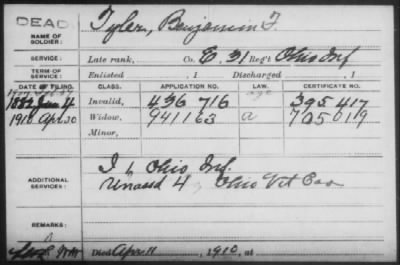 DEAD
NAME OF SOLDIER: Tyler, Benjamin F.
SERVICE: Late rank, Co. E, 31 Reg't Ohio Inf
TERM OF SERVICE: Enlisted , 1 Discharged , 1
DATE OF FILING. CLASS. APPLICATION NO. LAW. CERTIFICATE NO.
1882 Jan 4 Invalid, 436 716 395 417
1910 Apr. 30 Widow, 941163 a 705019
Minor,
ADDITIONAL SERVICES: I 1, Ohio Inf.
Unassd 4, Ohio Vet Cav
REMARKS:
Died Apr. 11, 1910, at